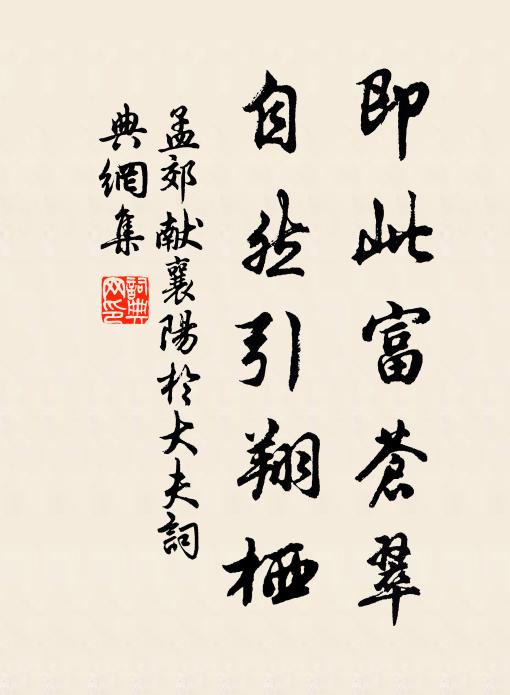 即此富蒼翠
自然引翔栖
孟郊献襄陽於大夫詞
典網集
詞典网印